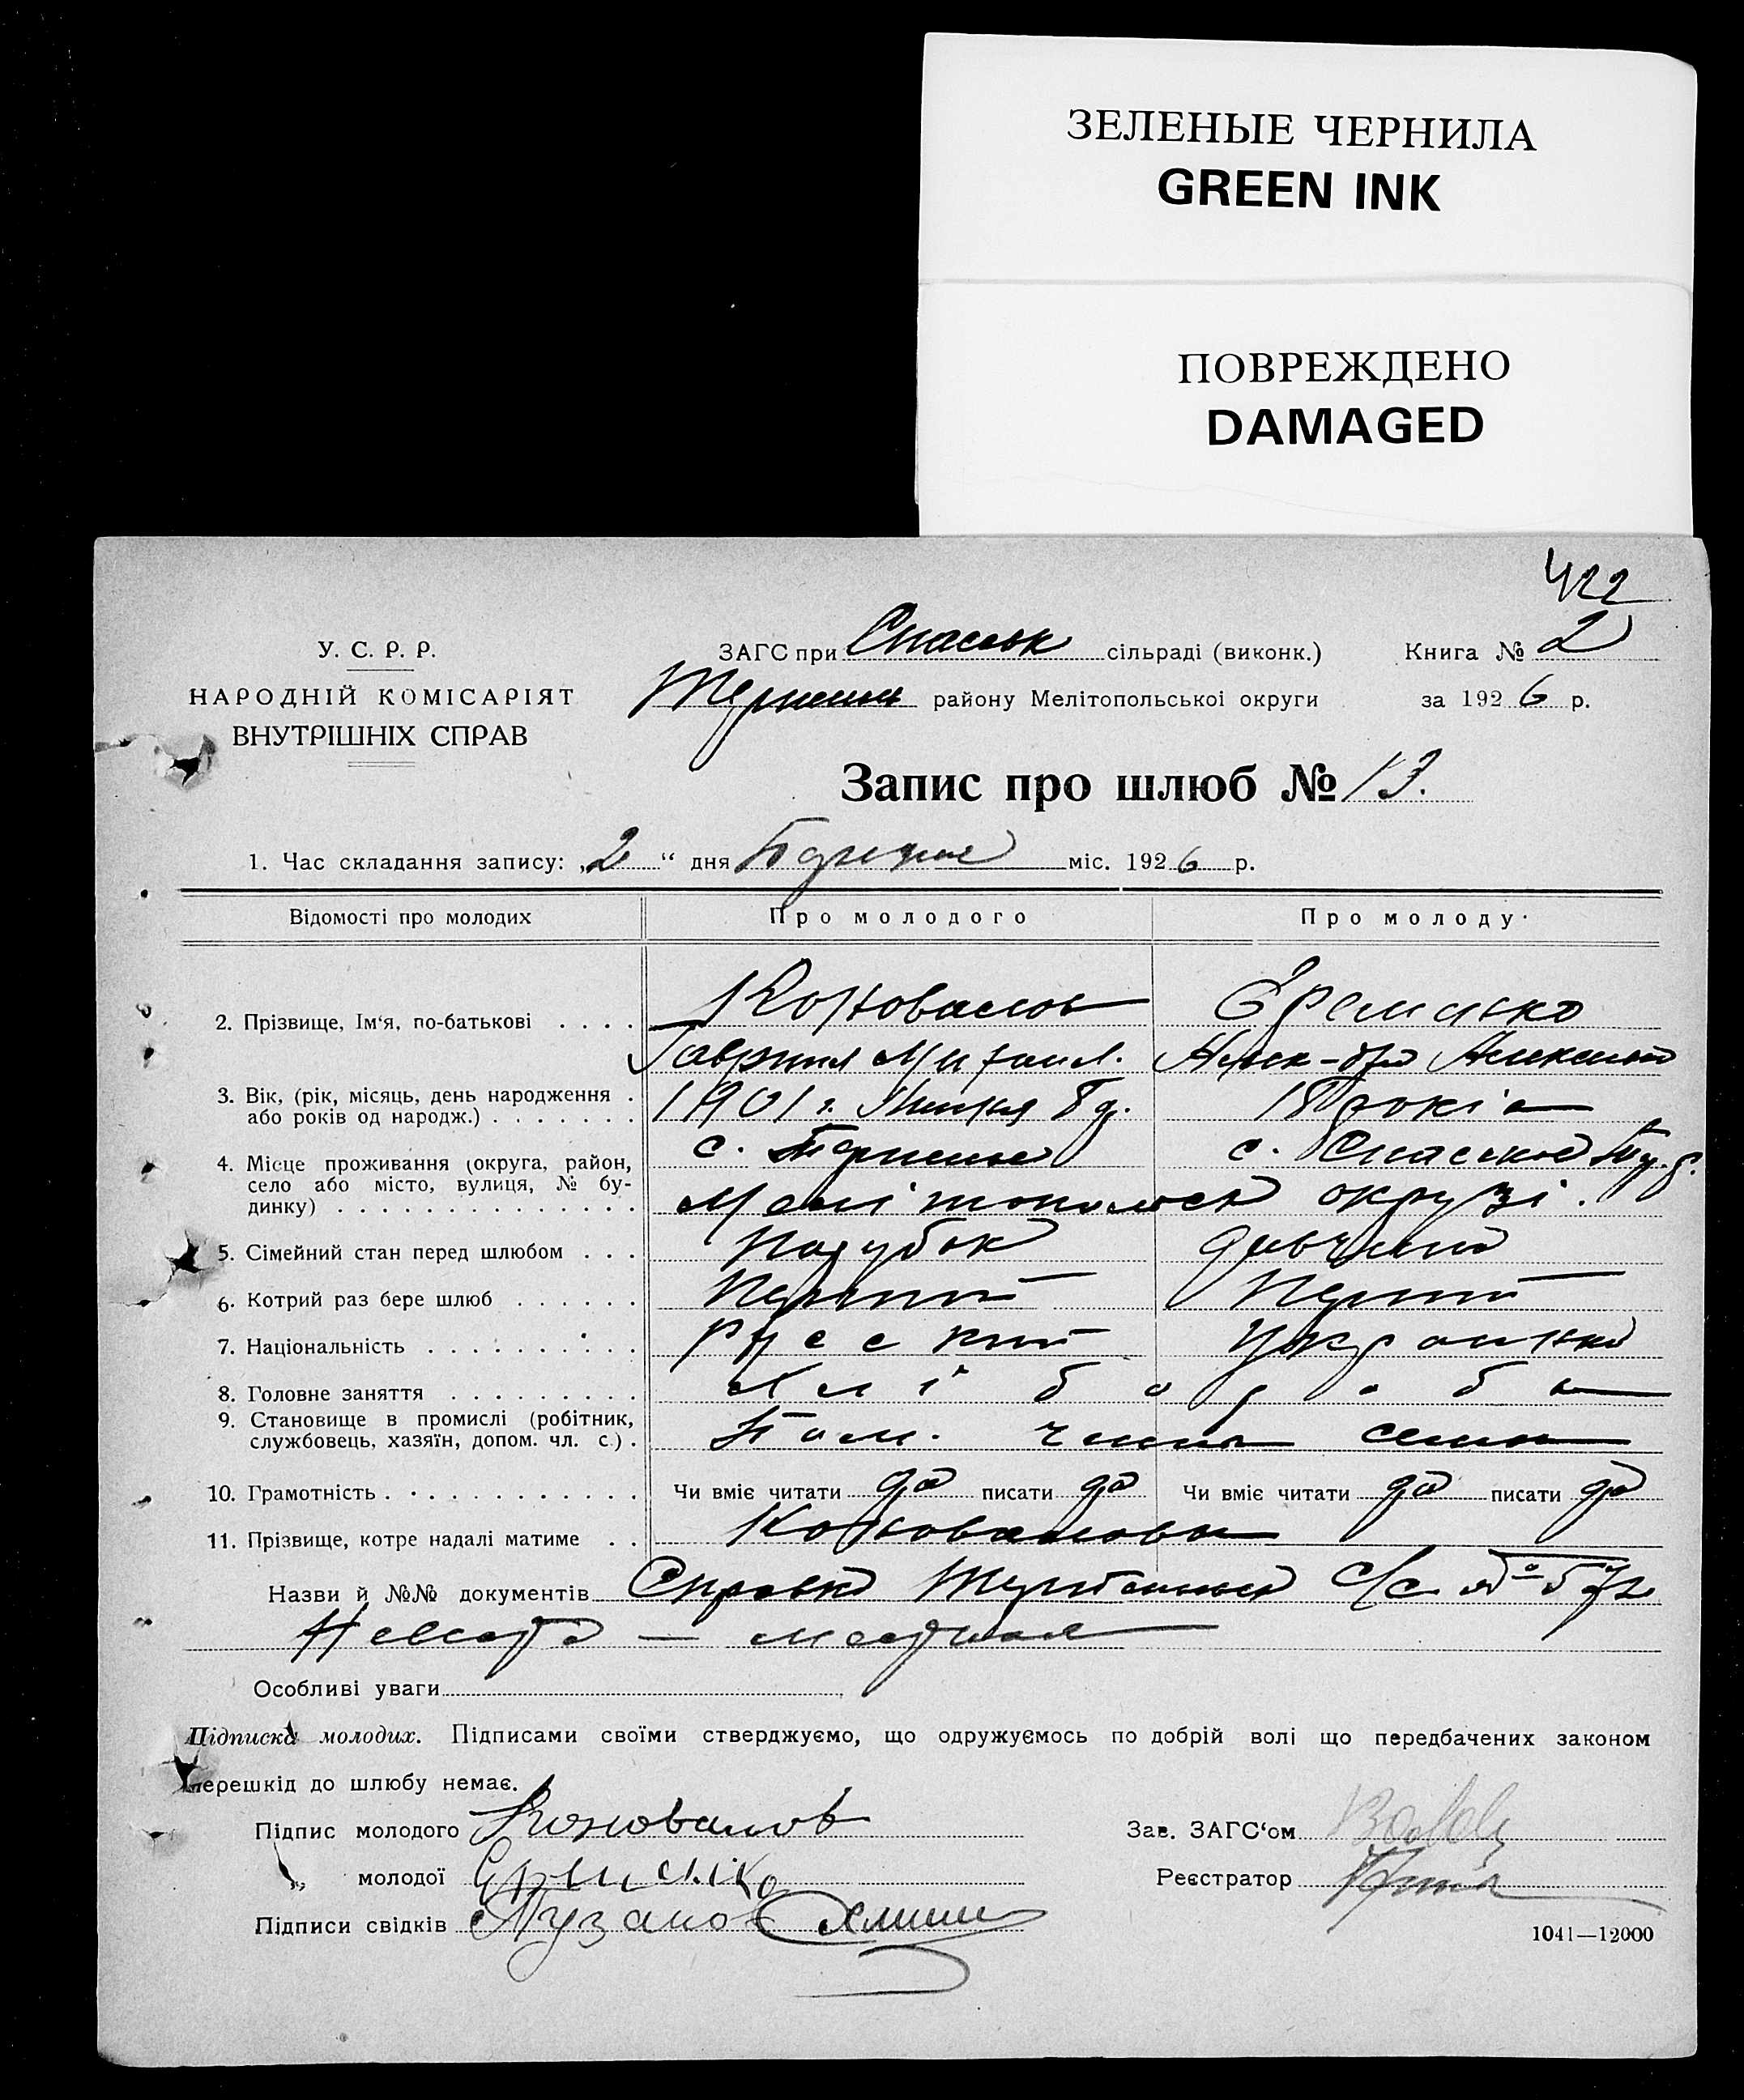 ЗЕЛЕНЫЕ ЧЕРНИЛА
GREEN INK
ПОВРЕЖДЕНО
DAMAGED
422
У. С. Р. Р.
НАРОДНІЙ КОМІСАРІЯТ
ВНУТРІШНІХ СПРАВ
ЗАГС при Спаськ сільраді (виконк.)
району Мелітопольської округи
Книга № 2
за 1926 р.
Запис про шлюб № 13.
1. Час складання запису: „2“ дня міс. 1926 р.
Відомості про молодих Про молодого Про молоду
2. Прізвище, Ім‘я, по-батькові . . . . Коновалов Єременко
Гаврил Михаил.
3. Вік, (рік, місяць, день народження . 1901 г. 8 д. 18 років
або років од народж.) . . . . . . .
4. Місце проживання (округа, район, с. с. Спаское
село або місто, вулиця, № бу-
динку) . . . . . . . . . . . . . . Мелітопольск округі.
5. Сімейний стан перед шлюбом . . . Парубок дивчина
6. Котрий раз бере шлюб . . . . . . Перший Перший
7. Національність . . . . . . . . . . Русский Украинка
8. Головне заняття . . . . . . . . . Хлібороби
9. Становище в промислі (робітник, члены семи
службовець, хазяїн, допом. чл. с.) .
10. Грамотність . . . . . . . . . . . . Чи вміє читати да писати да Чи вміє читати да писати да
11. Прізвище, котре надалі матиме . . Коноваловы
Назви й №№ документів Справка с/с
Особливі уваги
Підписка молодих. Підписами своїми стверджуємо, що одружуємось по добрій волі що передбачених законом
перешкід до шлюбу немає.
Підпис молодого Коновалов
Зав. ЗАГС‘ом
„ молодої
Реєстратор
Підписи свідків Пузанов
1041—12000